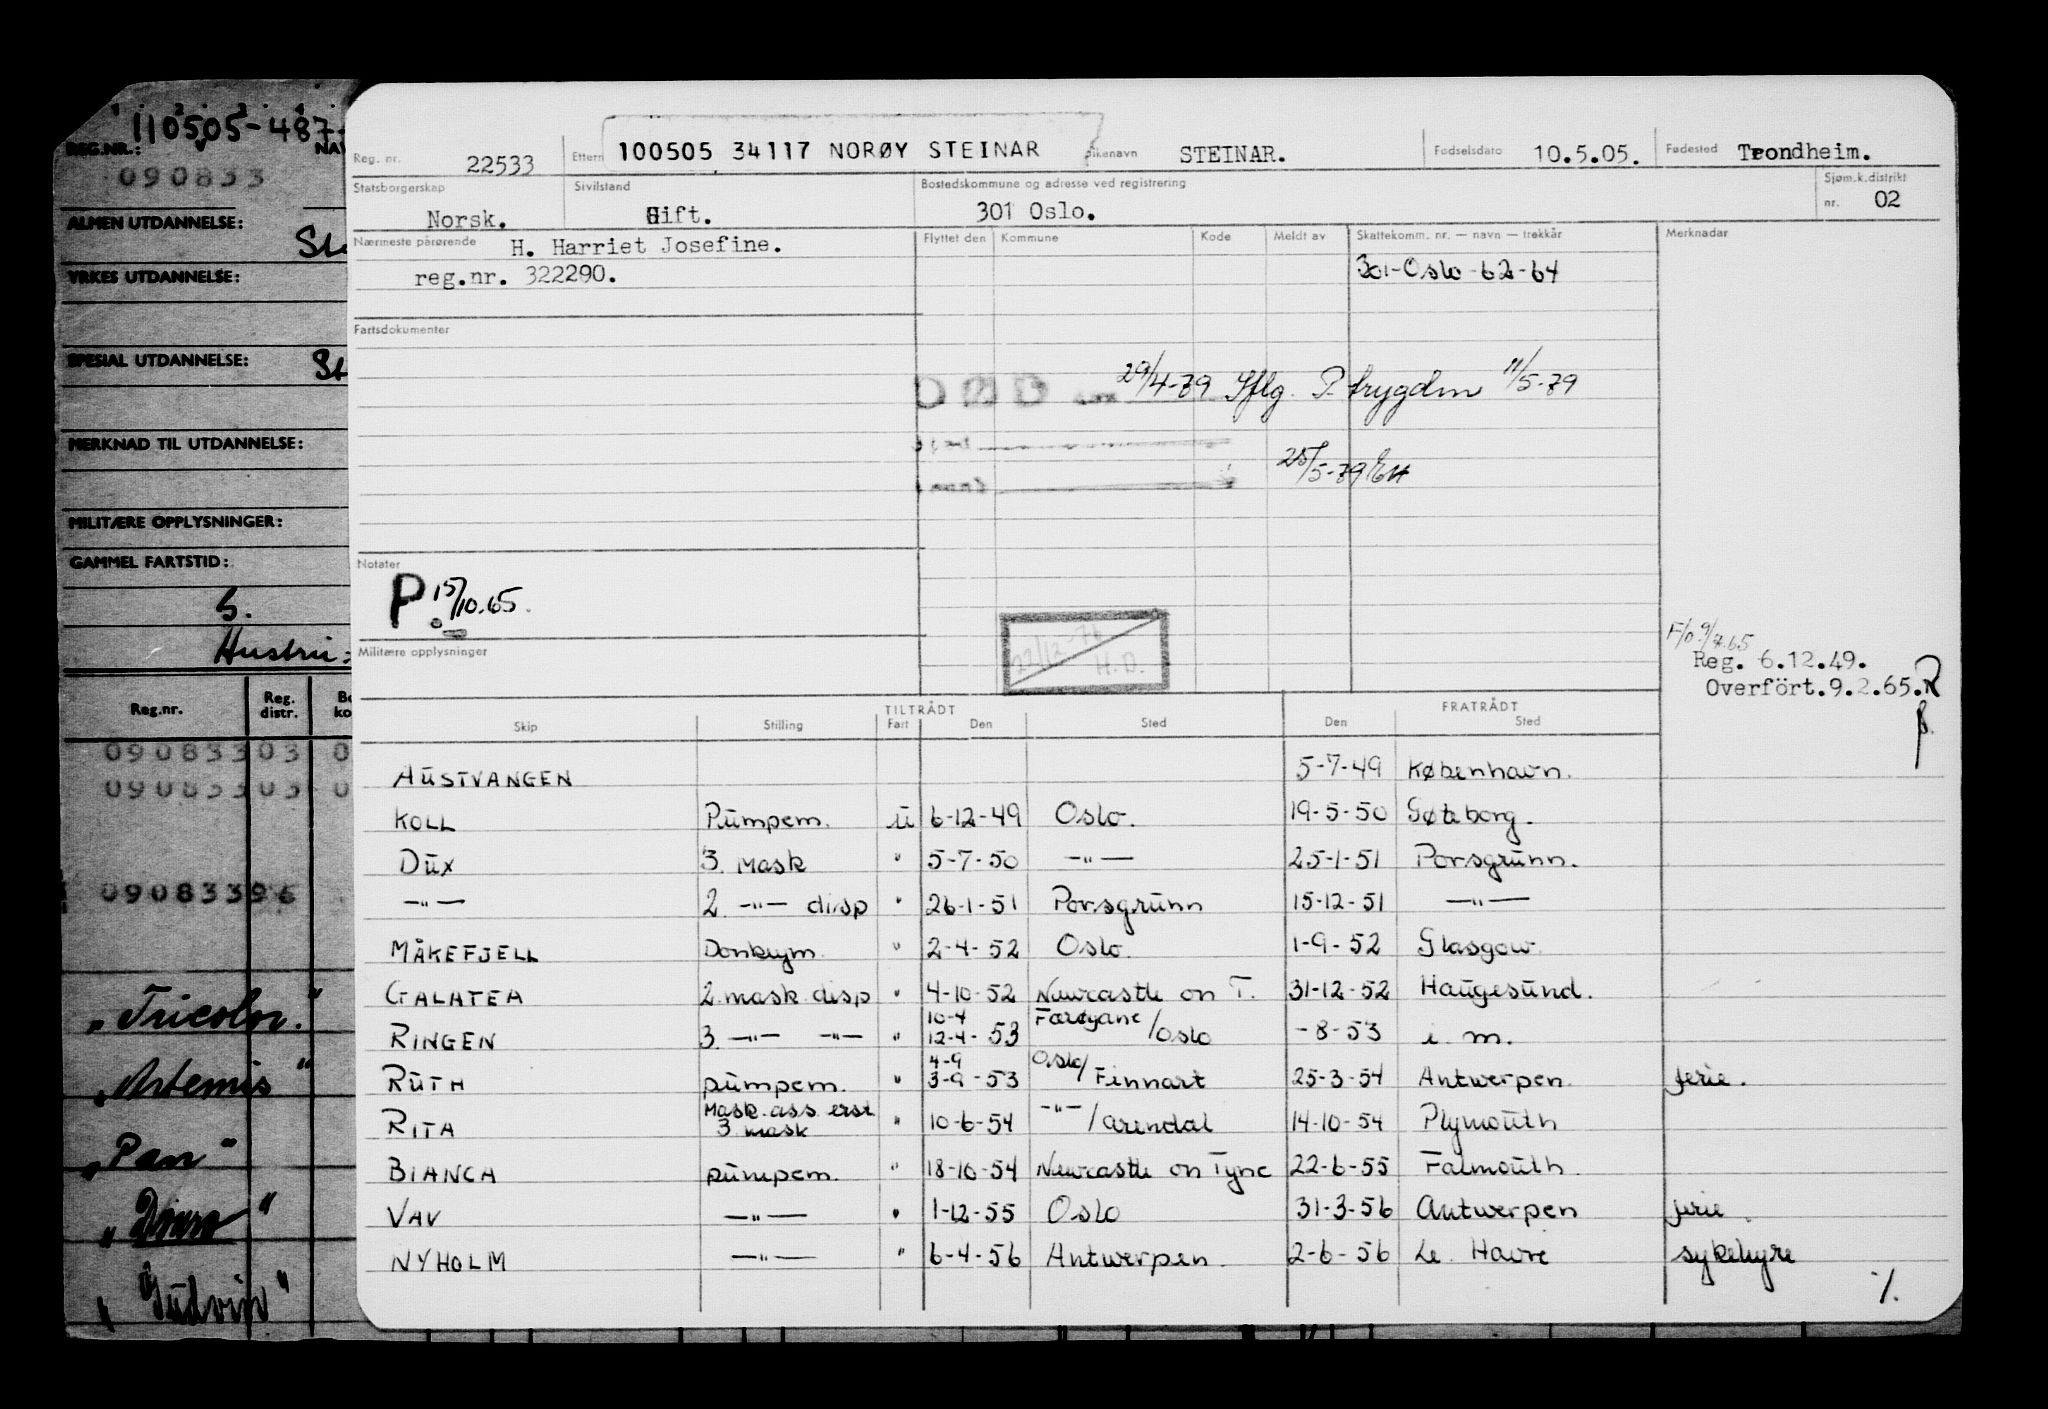 110505-487-
REG.NR.:
NAV
090833
ALMEN UTDANNELSE:
YRKES UTDANNELSE:
SPESIAL UTDANNELSE:
MERKNAD TIL UTDANNELSE:
MILITÆRE OPPLYSNINGER:
GAMMEL FARTSTID:
S.
Hustru:
Reg.nr. Reg. distr.
09083303 0
09083303 0
09083396
"Tricolor."
"Artemis"
"Pan"
"Gudvin"
Reg. nr. 22533 Ettern 100505 34117 NORØY STEINAR pikenavn STEINAR. Fødselsdato 10.5.05. Fødested Trondheim.
Statsborgerskap Norsk. Sivilstand Gift. Bostedskommune og adresse ved registrering 301 Oslo. Sjøm.k.distrikt nr. 02
Nærmeste pårørende H. Harriet Josefine. Flyttet den Kommune Kode Meldt av Skattekomm. nr. — navn — trekkår Merknadar
reg.nr. 322290. 301-Oslo-62-64
Fartsdokumenter
29/4-79 Sflg. P. trygdm 11/5-79
25/5-79 EH
Notater
P. 15/10.65.
Militære opplysninger
22/12-76 H.D.
F/o 9/7.65
Reg. 6.12.49.
Overfört.9.2.65.R
TILTRÅDT FRATRÅDT
Skip Stilling Fart Den Sted Den Sted
AUSTVANGEN 5-7-49 København.
KOLL Pumpem. u 6-12-49 Oslo. 19-5-50 Gøteborg.
DUX 3. mask " 5-7-50 —"— 25-1-51 Porsgrunn.
—"— 2. —"— disp " 26-1-51 Porsgrunn 15-12-51 —"—
MÅKEFJELL Donkeym. " 2-4-52 Oslo. 1-9-52 Glasgow.
GALATEA 2. mask. disp " 4-10-52 Newcastle on T. 31-12-52 Haugesund.
RINGEN 3. —"— —"— " 10-4 12-4-53 Færøyane/Oslo -8-53 i. m.
RUTH pumpem. " 4-9 3-9-53 Oslo/Finnart 25-3-54 Antwerpen. ferie.
RITA Mask. ass. erst 3 mask " 10-6-54 —"—/Arendal 14-10-54 Plymouth
BIANCA pumpem. " 18-10-54 Newcastle on Tyne 22-6-55 Falmouth.
VAV —"— " 1-12-55 Oslo 31-3-56 Antwerpen ferie.
NYHOLM —"— " 6-4-56 Antwerpen. 2-6-56 Le. Havre sykehyre
%